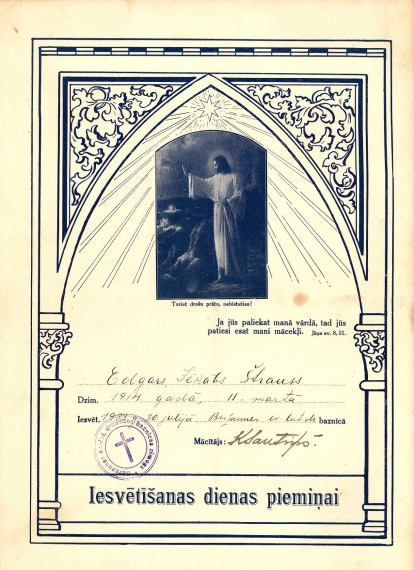 Turiet drošu prātu, nebīstaties!
Ja jūs paliekat manā vārdā, tad jūs
patiesi esat mani mācekļi. Jāņa ev. 8, 31.
Edgars, Štrauss
Dzim. 1914 gadā, 11. martā
Iesvēt. 30. jūlijā ev. lut. dr. baznīcā
Mācītājs:
Iesvētīšanas dienas piemiņai